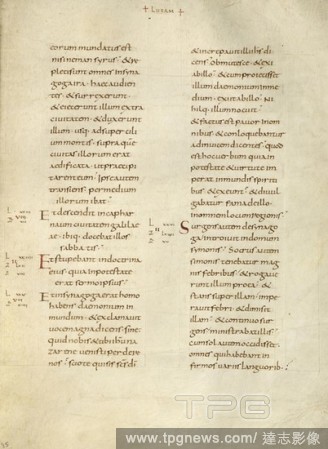 + LUCAM +
eorum mundatus est
nisi neman syrus · & re
pleti sunt omnes insyna
goga ira haec audien
tes · & surrexerunt
& eiecerunt illum extra
ciuitatem · & duxerunt
illum · usq; ad supercili
um montis · supra que
ciuitas illorum erat
aedificata · ut praecipi
tarent eum · Ipse autem
transiens per medium
illorum ibat ·
Et descendit in caphar
naum ciuitatem galilae
ae · ibiq; docebat illos
sabbatis ·
Et stupebant in doctrina
eius quia in potestate
erat sermo ipsius ·
Et in synagoga erat homo
habens daemonium in
mundum · & exclamauit
uoce magna dicens · sine
quid nobis & tibi ihu na
zarene uenisti perdere
nos · scio te qui sis scs di
& increpauit illi ihs di
cens · obmutesce · & exi
ab illo · & cum proiecisset
illum daemonium in me
dium · exiit ab illo · Ni
hilq; illum nocuit ·
& factus est pauor in om
nibus & conloquebantur
ad inuicem dicentes · quod
est hoc uerbum quia in
potestate & uirtute im
perat inmundis spiriti
bus & exeunt · & diuul
gabatur fama de illo
in omnem locum regionis ·
Surgens autem de synago
ga introiuit in domum
symonis · Socrus autem
symonis tenebatur mag
nis febribus · & rogaue
runt illum pro ea · &
stans super illam · impe
rauit febri · & dimisit
illam · & continuo sur
gens ministrabat illis ·
Cum sol autem occidisset
omnes qui habebant in
firmos uariis languorib:
TPG
www.tpgnews.com/ 達志影像